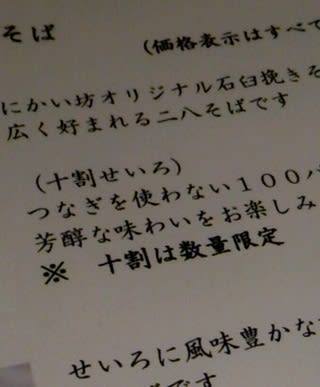 そば
(価格表示はすべて
にかい坊オリジナル石臼挽きそ
広く好まれる二八そばです
(十割せいろ)
つなぎを使わない100パ
芳醇な味わいをお楽しみ
※ 十割は数量限定
せいろに風味豊かな
です